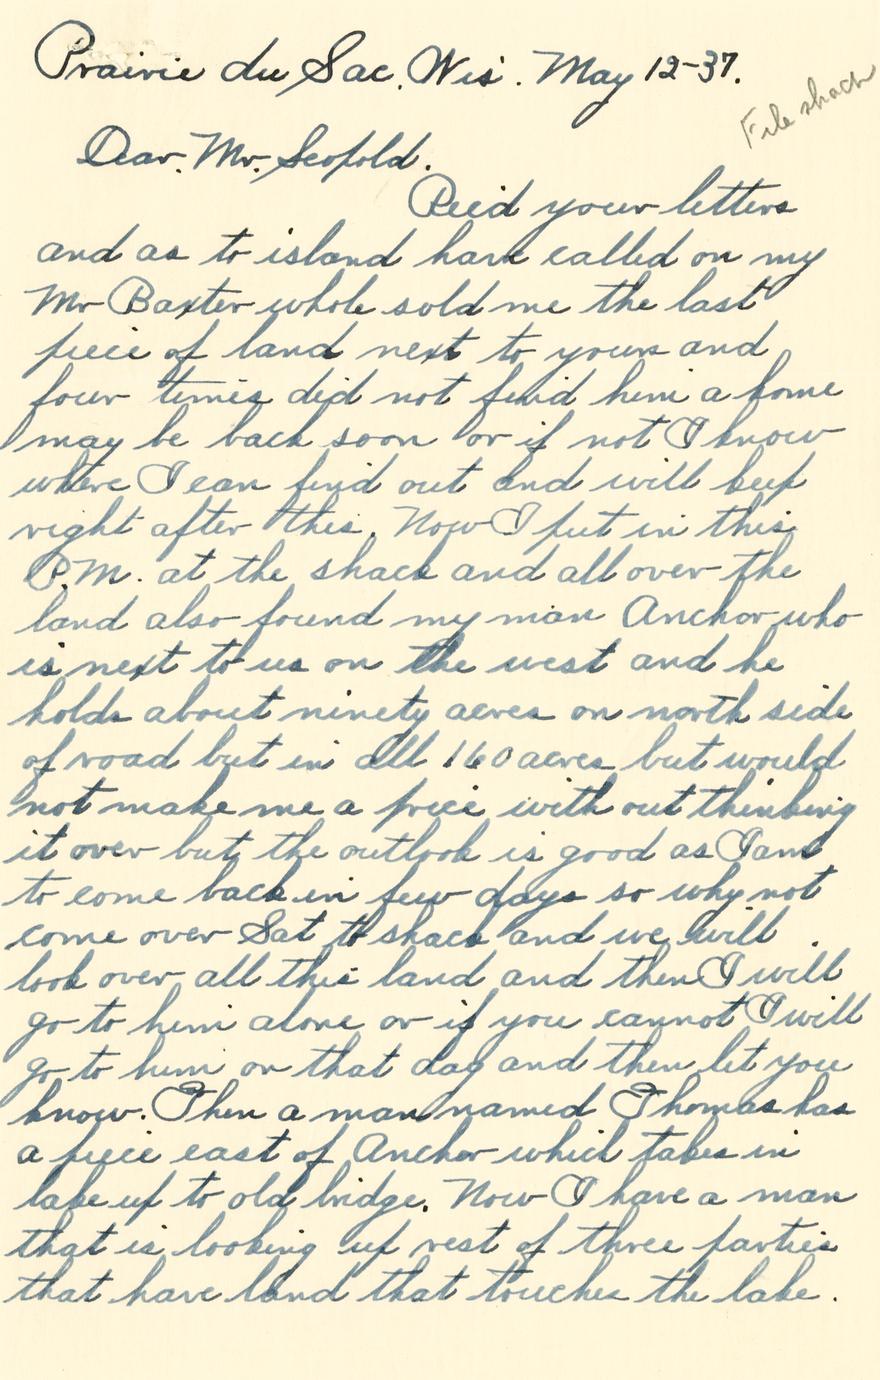 Prairie du Sac, Wis. May 12-37.
File shack
Dear Mr. Leopold.
Rec'd your letters
and as to island have called on my
Mr Baxter whole sold me the last
piece of land next to yours and
four times did not find him a home
may be back soon or if not I know
where I can find out and will keep
right after this. Now I put in this
P.M. at the shack and all over the
land also found my man Anchor who
is next to us on the west and he
holds about ninety acres on north side
of road but in all 160 acres but would
not make me a price with out thinking
it over but the outlook is good as I am
to come back in few days so why not
come over Sat to shack and we will
look over all this land and then I will
go to him alone or if you cannot I will
go to him on that day and then let you
know. Then a man named Thomas has
a piece east of Anchor which takes in
lake up to old bridge. Now I have a man
that is looking up rest of three parties
that have land that touches the lake.